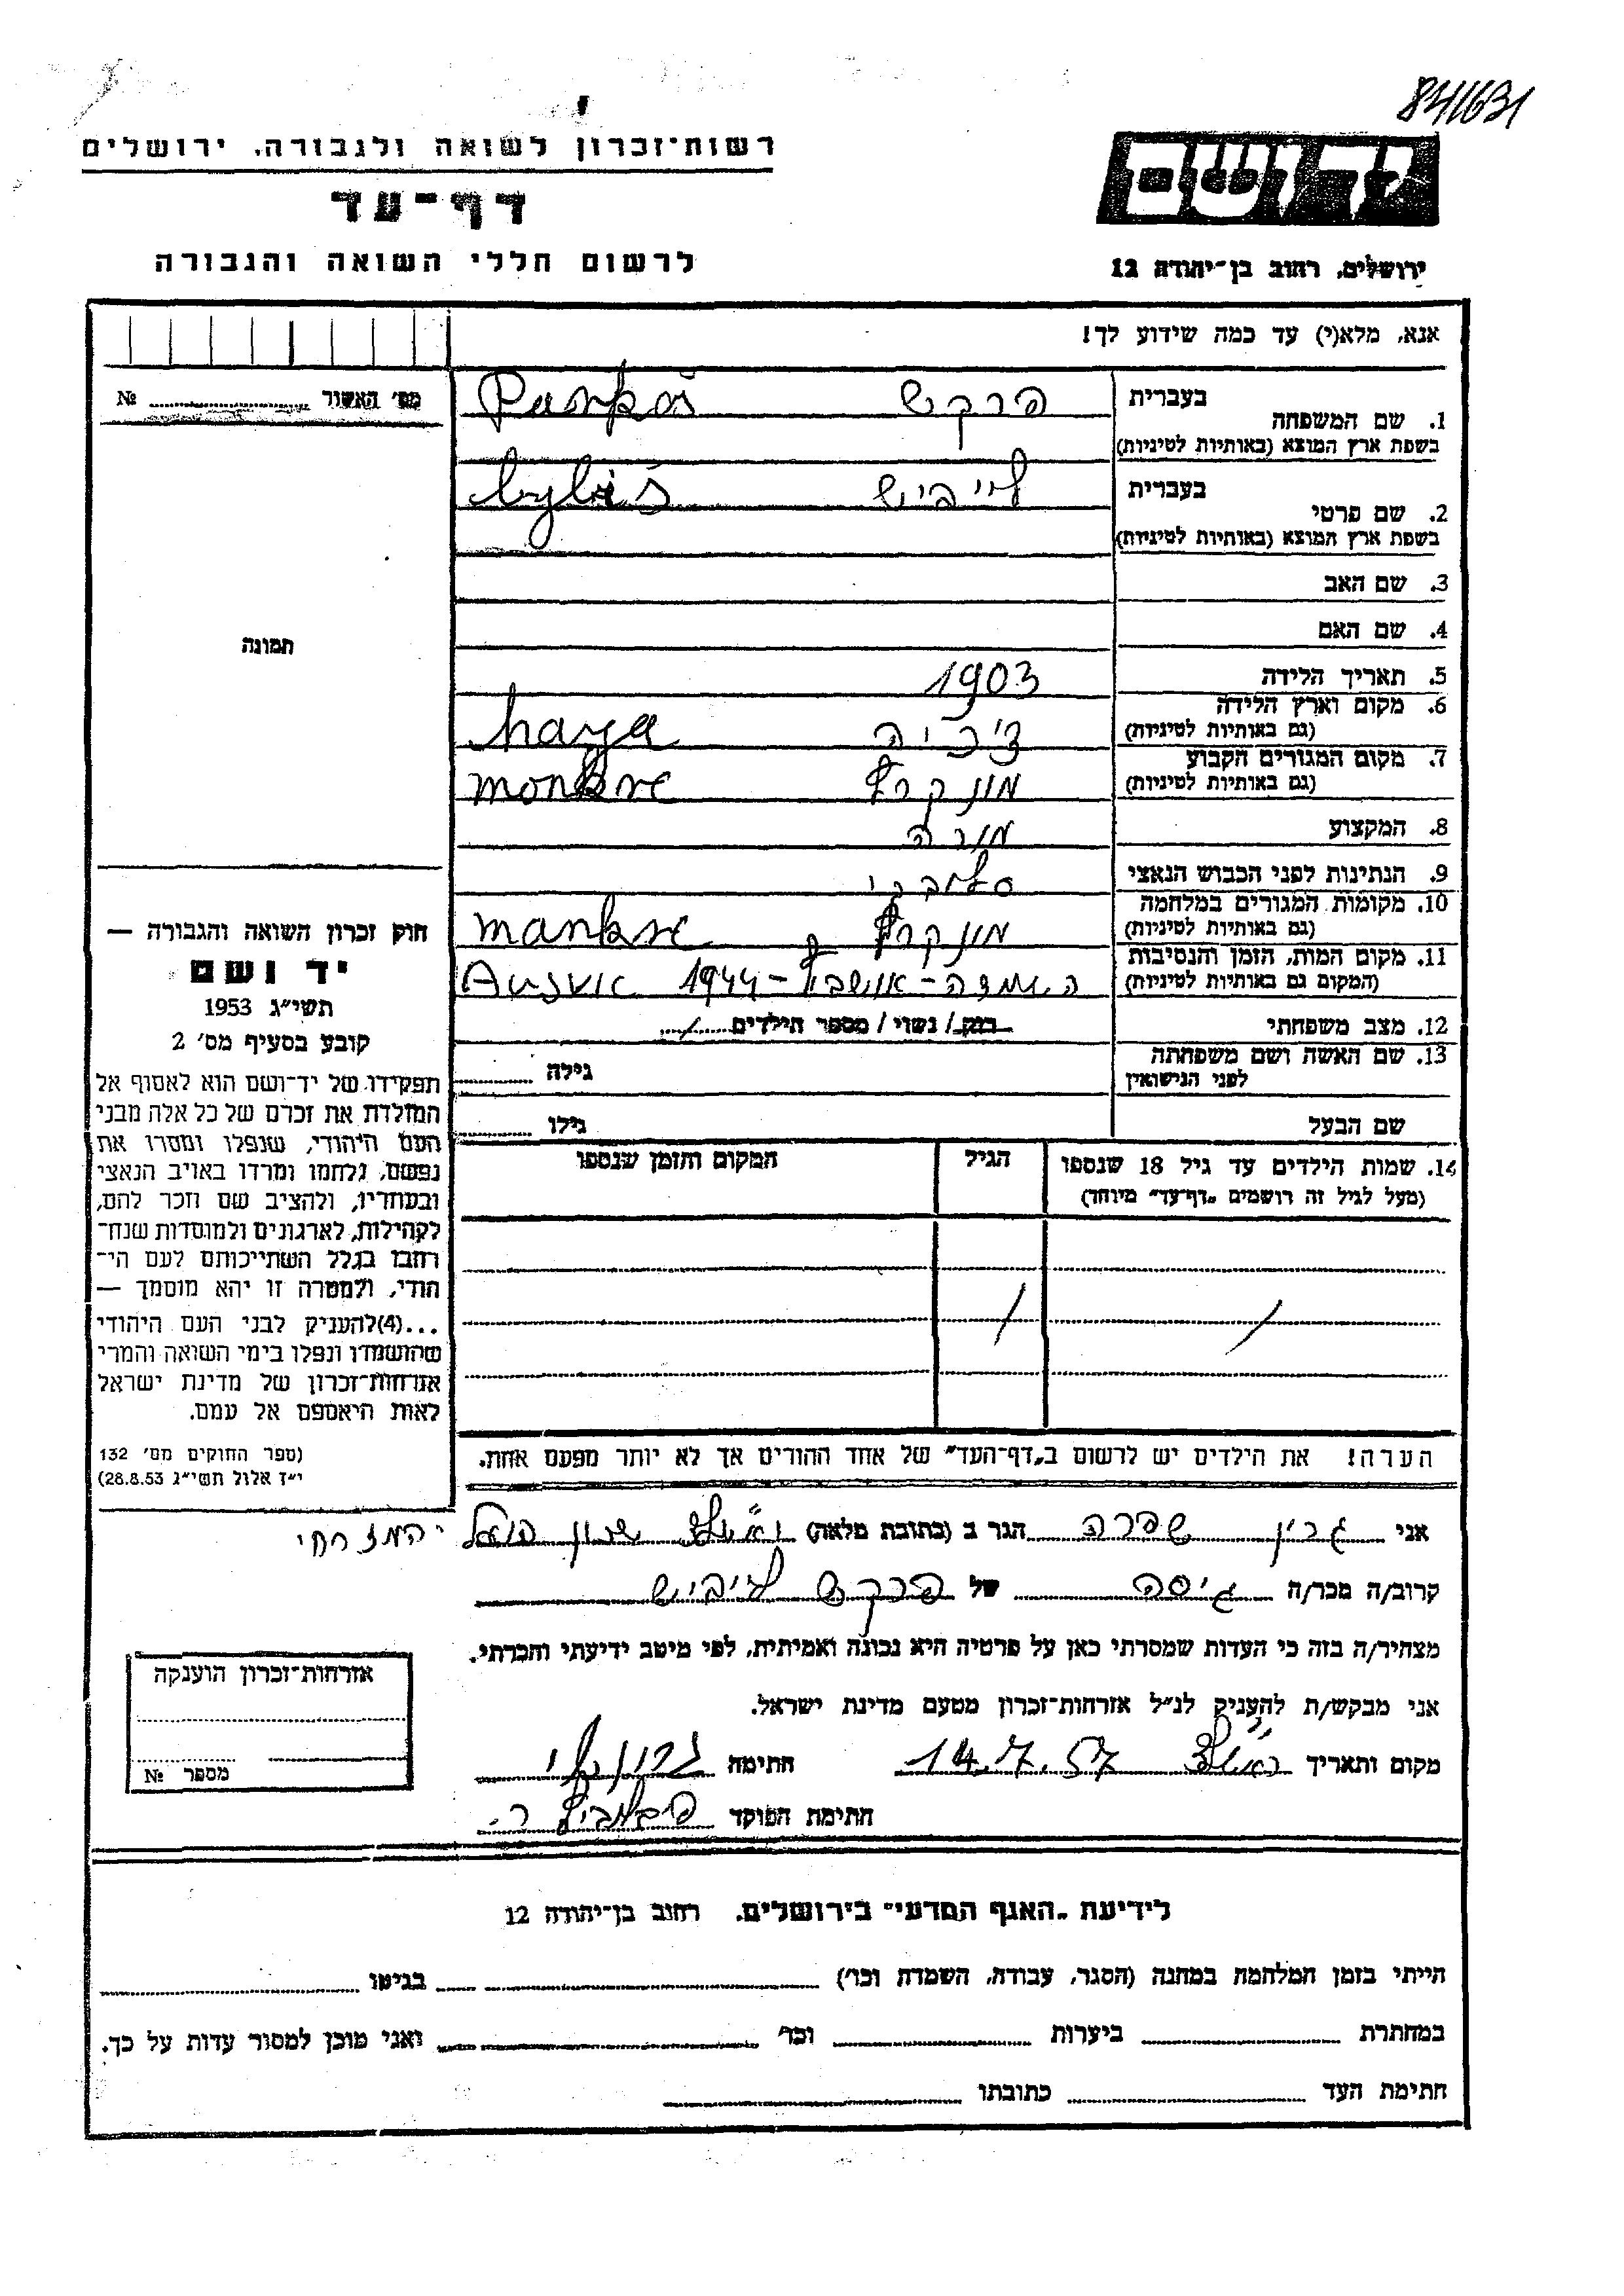 841631
רשות־זכרון לשואה ולגבורה. ירושלים
דף־עד
לרשום חללי השואה והגבורה
ירושלים, רחוב בן־יהודה 12
אנא, מלא(י) עד כמה שידוע לך!
מס' האשור № 
בעברית
1. שם המשפחה
בשפת ארץ המוצא (באותיות לטיניות)
פרקש
בעברית
2. שם פרטי
בשפת ארץ המוצא (באותיות לטיניות)
לייביש
3. שם האב
4. שם האם
5. תאריך הלידה 1903
6. מקום וארץ הלידה
(גם באותיות לטיניות)
haya
7. מקום המגורים הקבוע
(גם באותיות לטיניות)
8. המקצוע מורה
9. הנתינות לפני הכבוש הנאצי
10. מקומות המגורים במלחמה
(גם באותיות לטיניות)
11. מקום המות, הזמן והנסיבות
(המקום גם באותיות לטיניות)
1944
12. מצב משפחתי רווק / נשוי / מספר הילדים
13. שם האשה ושם משפחתה
לפני הנישואין
גילה
שם הבעל גילו
14. שמות הילדים עד גיל 18 שנספו הגיל המקום והזמן שנספו
(מעל לגיל זה רושמים „דף־עד" מיוחד)
הערה! את הילדים יש לרשום ב„דף־העד" של אחד ההורים אך לא יותר מפעם אחת.
תמונה
חוק זכרון השואה והגבורה —
יד ושם
תשי"ג 1953
קובע בסעיף מס' 2
תפקידו של יד־ושם הוא לאסוף אל
המולדת את זכרם של כל אלה מבני
העם היהודי, שנפלו ומסרו את
נפשם, נלחמו ומרדו באויב הנאצי
ובעוזריו, ולהציב שם וזכר להם,
לקהילות, לארגונים ולמוסדות שנח־
רבו בגלל השתייכותם לעם הי־
הודי, ולמטרה זו יהא מוסמך —
...(4)להעניק לבני העם היהודי
שהושמדו ונפלו בימי השואה והמרי
אזרחות־זכרון של מדינת ישראל
לאות היאספם אל עמם.
(ספר החוקים מס' 132
י"ז אלול תשי"ג 28.8.53)
אני שפרה הגר ב (כתובת מלאה)
קרוב/ה מכר/ה גיסה של פרקש לייביש
מצהיר/ה בזה כי העדות שמסרתי כאן על פרטיה היא נכונה ואמיתית, לפי מיטב ידיעתי והכרתי.
אני מבקש/ת להעניק לנ"ל אזרחות־זכרון מטעם מדינת ישראל.
מקום ותאריך 14.7.57 חתימה
חתימת הפוקד
אזרחות־זכרון הוענקה
מספר №
לידיעת „האגף המדעי" בירושלים. רחוב בן־יהודה 12
הייתי בזמן המלחמה במחנה (הסגר, עבודה, השמדה וכו') בגיטו
במחתרת ביערות וכו' ואני מוכן למסור עדות על כך.
חתימת העד כתובתו